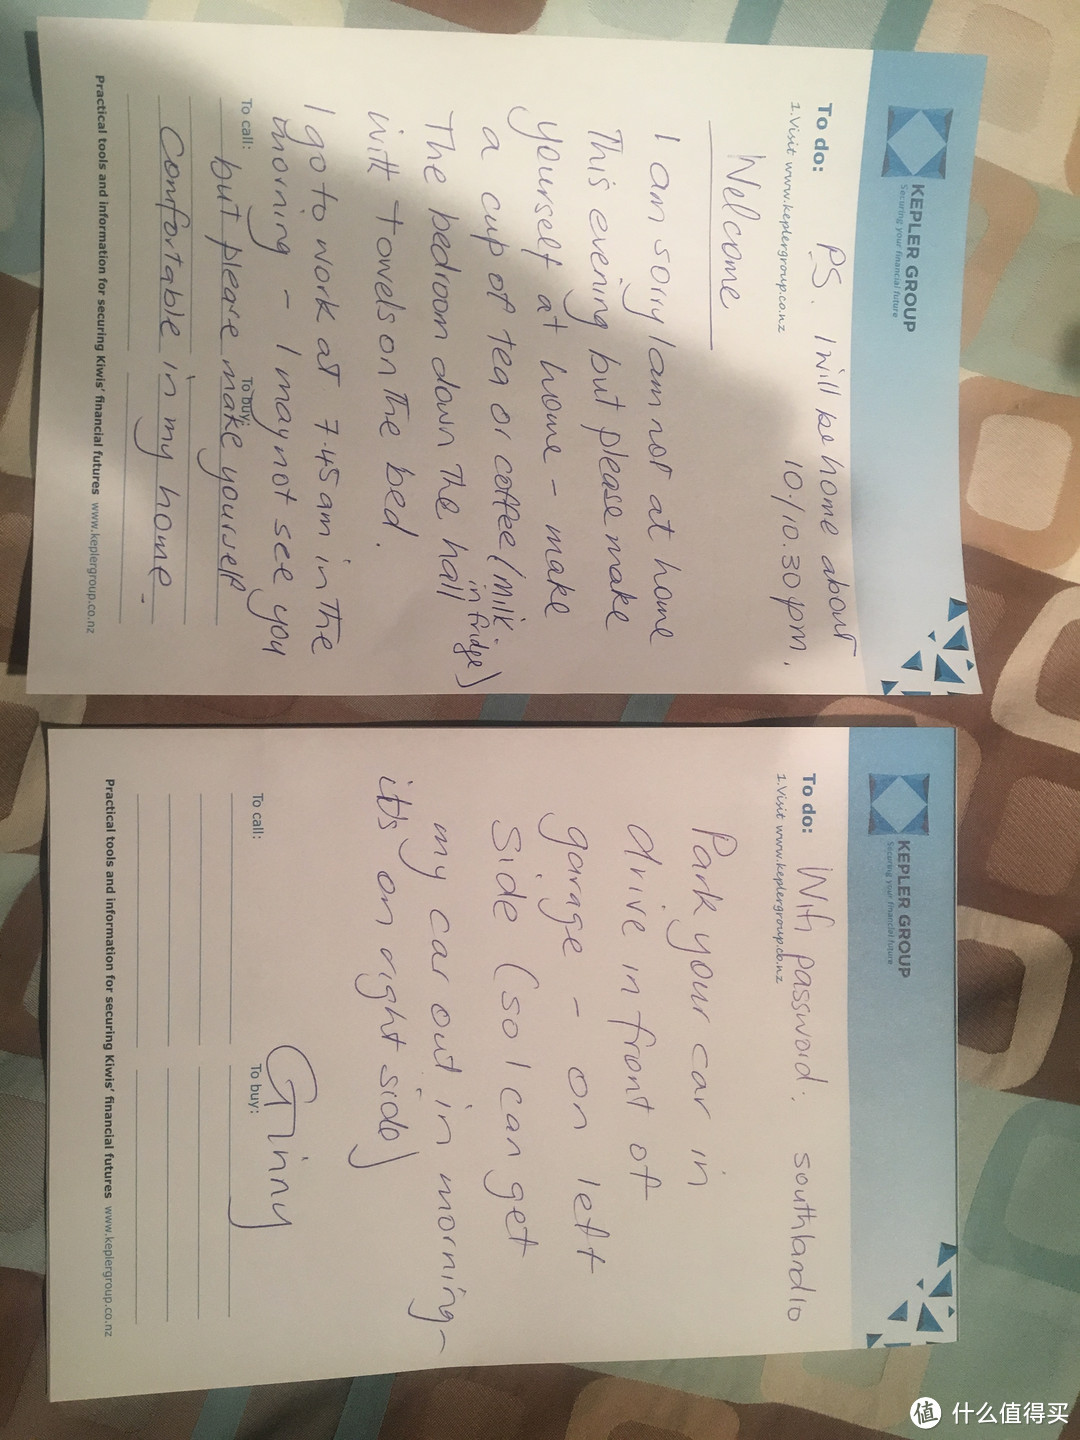 KEPLER GROUP
Securing your financial future
To do:
1. Visit www.keplergroup.co.nz
PS. I will be home about
10./10.30pm.
Welcome
I am sorry I am not at home
This evening but please make
yourself at home - make
a cup of tea or coffee (milk in fridge)
The bedroom down The hall
with towels on The bed.
I go to work at 7.45am in The
morning - I may not see you
To call:
To buy:
but please make yourself
comfortable in my home.
Practical tools and information for securing Kiwis' financial futures www.keplergroup.co.nz
KEPLER GROUP
Securing your financial future
To do:
1. Visit www.keplergroup.co.nz
Wifi password: southland10
Park your car in
drive in front of
garage - on left
side (so I can get
my car out in morning -
its on right side)
Ginny
To call:
To buy:
Practical tools and information for securing Kiwis' financial futures www.keplergroup.co.nz
值 什么值得买